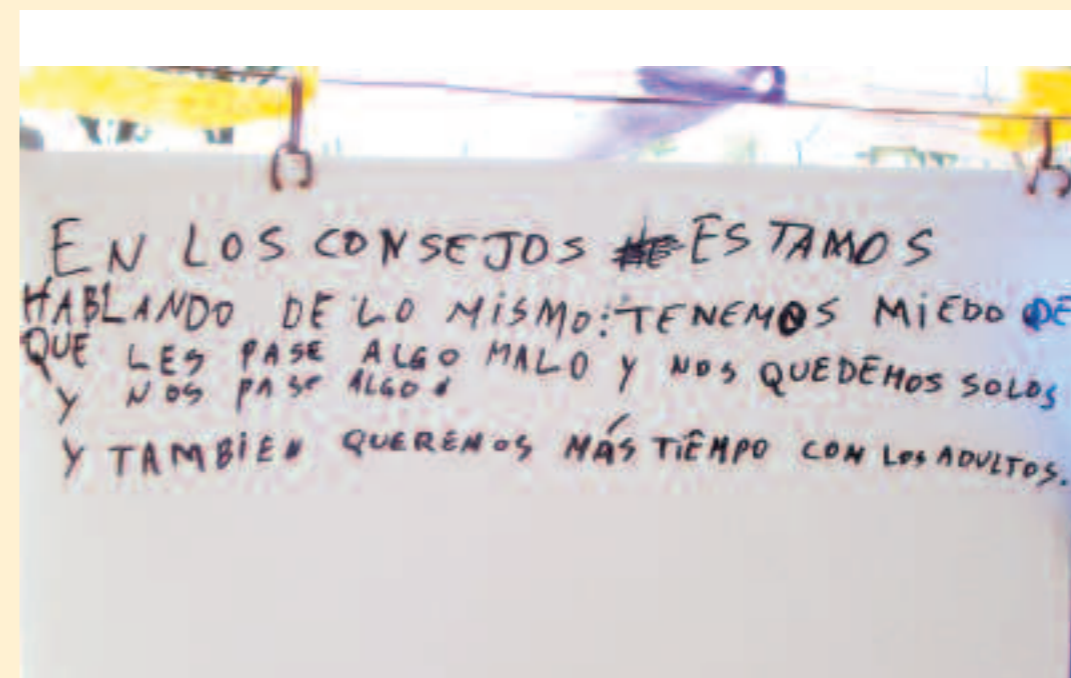 EN LOS CONSEJOS ESTAMOS
HABLANDO DE LO MISMO: TENEMOS MIEDO DE
QUE LES PASE ALGO MALO Y NOS QUEDEMOS SOLOS
Y NOS PASE ALGO.
Y TAMBIEN QUEREMOS MÁS TIEMPO CON LOS ADULTOS.